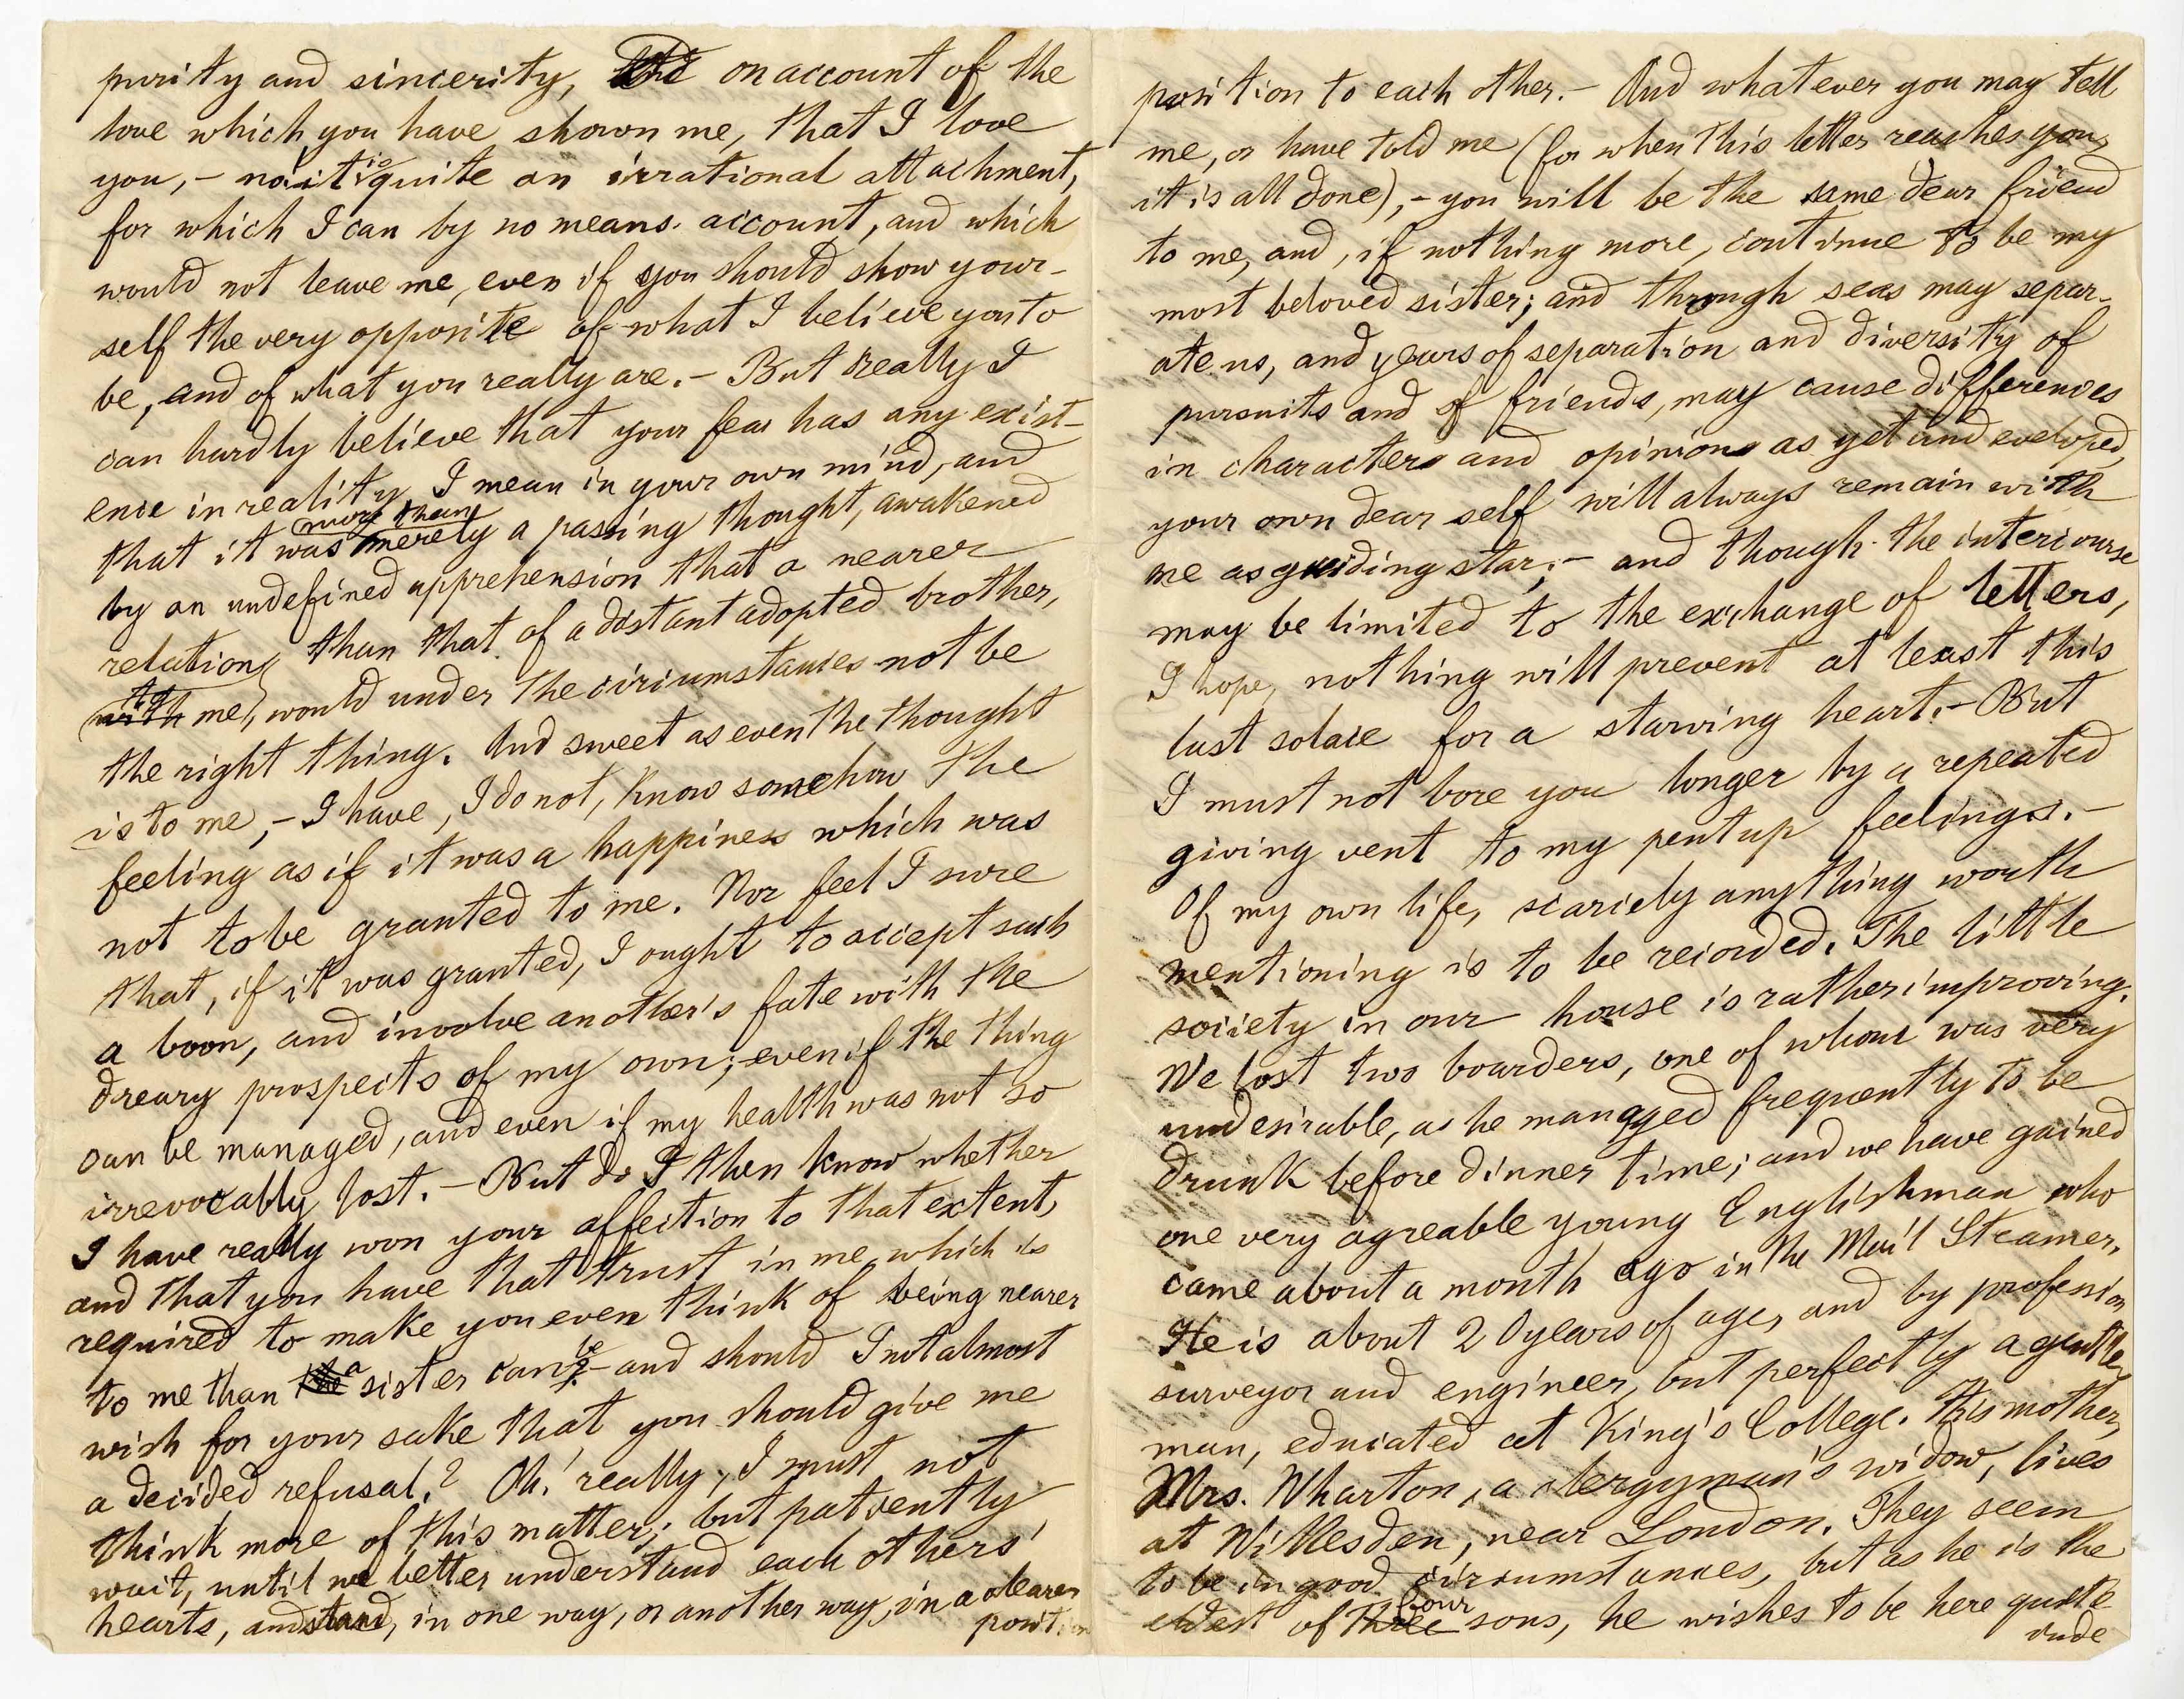 purity and sincerity, and on account of the
love which you have shown me, that I love
you, - no it is quite an irrational attachment,
for which I can by no means account, and which
would not leave me, even if you should show your-
self the very opposite of what I believe you to
be, and of what you really are. - But really I
can hardly believe that your fear has any exist-
ence in reality, I mean in your own mind, and
that it was more than merely a passing thought, awakened
by an undefined apprehension that a nearer
relation, than that of a distant adopted brother,
with to me, would under the circumstances not be
the right thing. And sweet as even the thought
is to me, - I have, I do not, know somehow the
feeling as if it was a happiness which was
not to be granted to me. Nor feel I sure
that, if it was granted, I ought to accept such
a boon, and involve another's fate with the
dreary prospects of my own; even if the thing
can be managed, and even if my health was not so
irrevocably lost. - But do I then know whether
I have really won your affection to that extent,
and that you have that trust in me, which is
required to make you even think of being nearer
to me than the a sister can be? - and should I not almost
wish for your sake that you should give me
a decided refusal? Oh! really, I must not
think more of this matter; but patiently
wait, until we better understand each others'
hearts, and stand, in one way, or another way, in a clearer
posit
position to each other. - And whatever you may tell
me, or have told me (for when this letter reaches you,
it is all done), - you will be the same dear friend
to me, and, if nothing more, continue to be my
most beloved sister; and through seas may separ-
ate us, and years of separation and diversity of
pursuits and of friends, may cause differences
in characters and opinions as yet undeveloped,
your own dear self will always remain with
me as guiding star; - and though the intercourse
may be limited to the exchange of letters,
I hope, nothing will prevent at least this
last solace for a starving heart. - But
I must not bore you longer by a repeated
giving vent to my pent up feelings. -
Of my own life, scarcely anything worth
mentioning is to be recorded. The little
society in our house is rather improving.
We lost two boarders, one of whom was very
undesirable, as he managed frequently to be
drunk before dinner time; and we have gained
one very agreable young Englishman who
came about a month ago in the Mail Steamer.
He is about 20 years of age, and by profession
surveyor and engineer, but perfectly a gentle
man, educated at King's College. His mother,
Mrs. Wharton, a clergyman's widow, lives
at Willesden, near London. They seem
to be in good circumstances, but as he is the
eldest of three four sons, he wishes to be here quite
inde